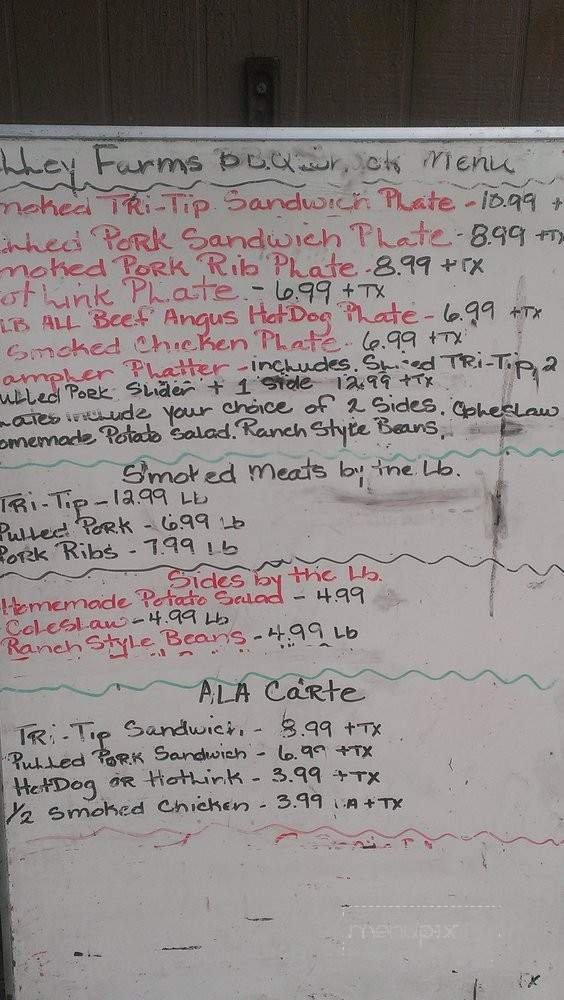 lley Farms Menu
moked TRi-Tip Sandwich Plate - 10.99 +
Pork Sandwich Plate - 8.99 +TX
moked Pork Rib Plate - 8.99 +TX
otLink Plate - 6.99 +TX
LB ALL Beef Angus HotDog Plate - 6.99 +TX
Smoked Chicken Plate - 6.99 +TX
ampler Platter - includes. Sliced TRi-Tip, 2
ulled Pork Slider + 1 Side 12.99 +TX
lates include your choice of 2 Sides. Coleslaw
omemade Potato Salad. Ranch Style Beans.
Smoked Meats by the Lb.
TRi-Tip - 12.99 Lb
Pulled Pork - 6.99 Lb
Pork Ribs - 7.99 Lb
Sides by the Lb.
Homemade Potato Salad - 4.99
Coleslaw - 4.99 Lb
Ranch Style Beans - 4.99 Lb
ALA Carte
TRi-Tip Sandwich - 8.99 +TX
Pulled Pork Sandwich - 6.99 +TX
HotDog OR HotLink - 3.99 +TX
1/2 Smoked Chicken - 3.99 +TX
menupix
TX